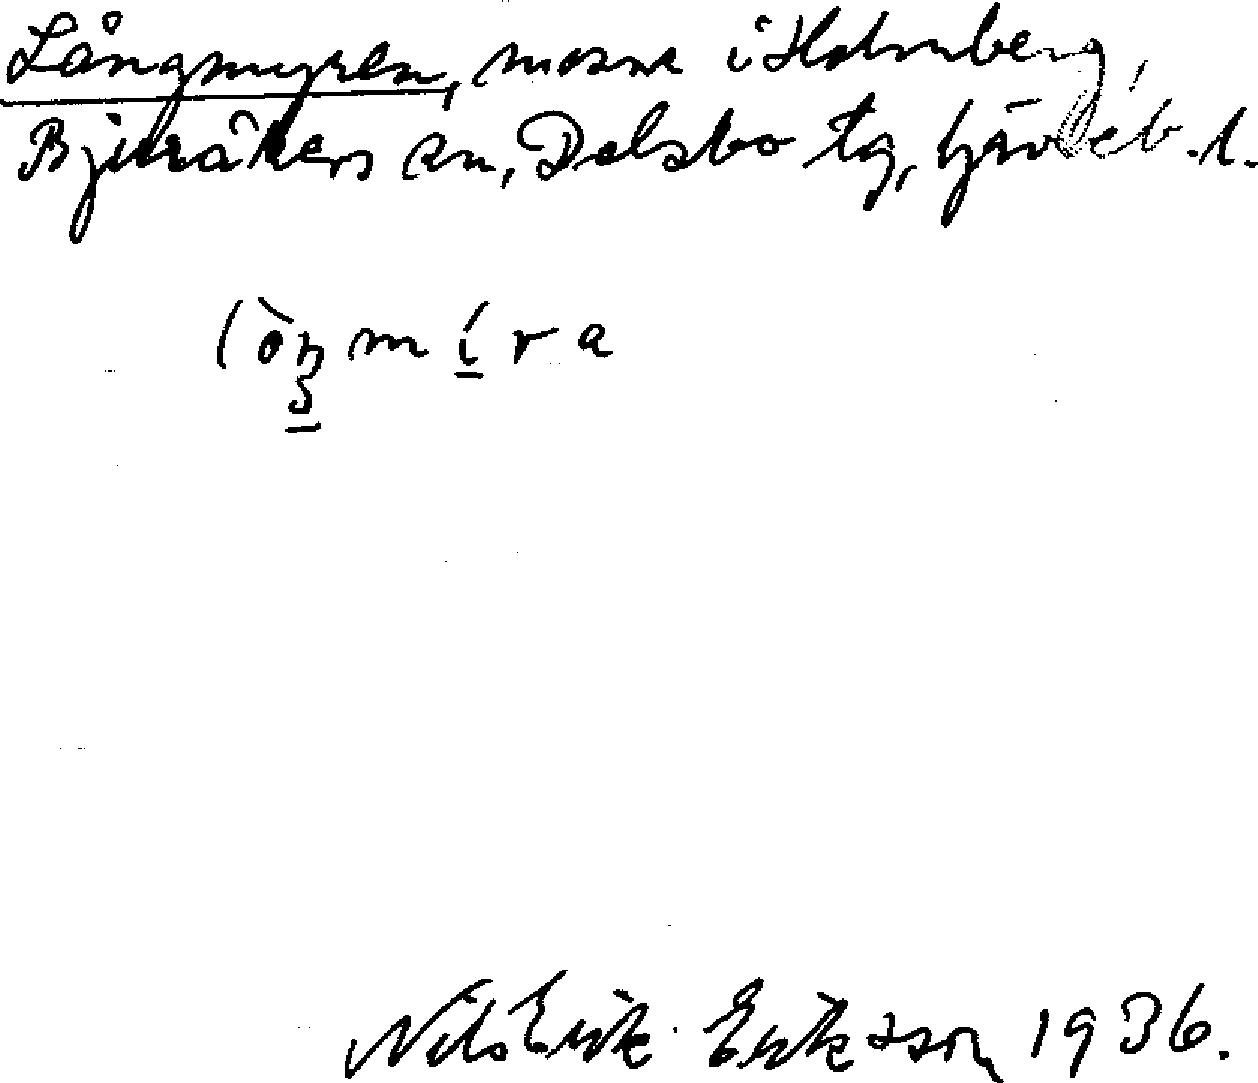 Långmyren, mosse i Holmberg,
Bjuråkers sn, Delsbo tg, Gävleb. l.
Nils Erik Eriksson 1936.